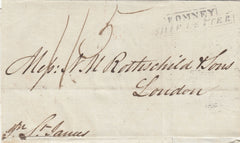 11/5
ROMNEY
SHIP LETTER
Messrs N M Rothschild & Sons
London
pr St James